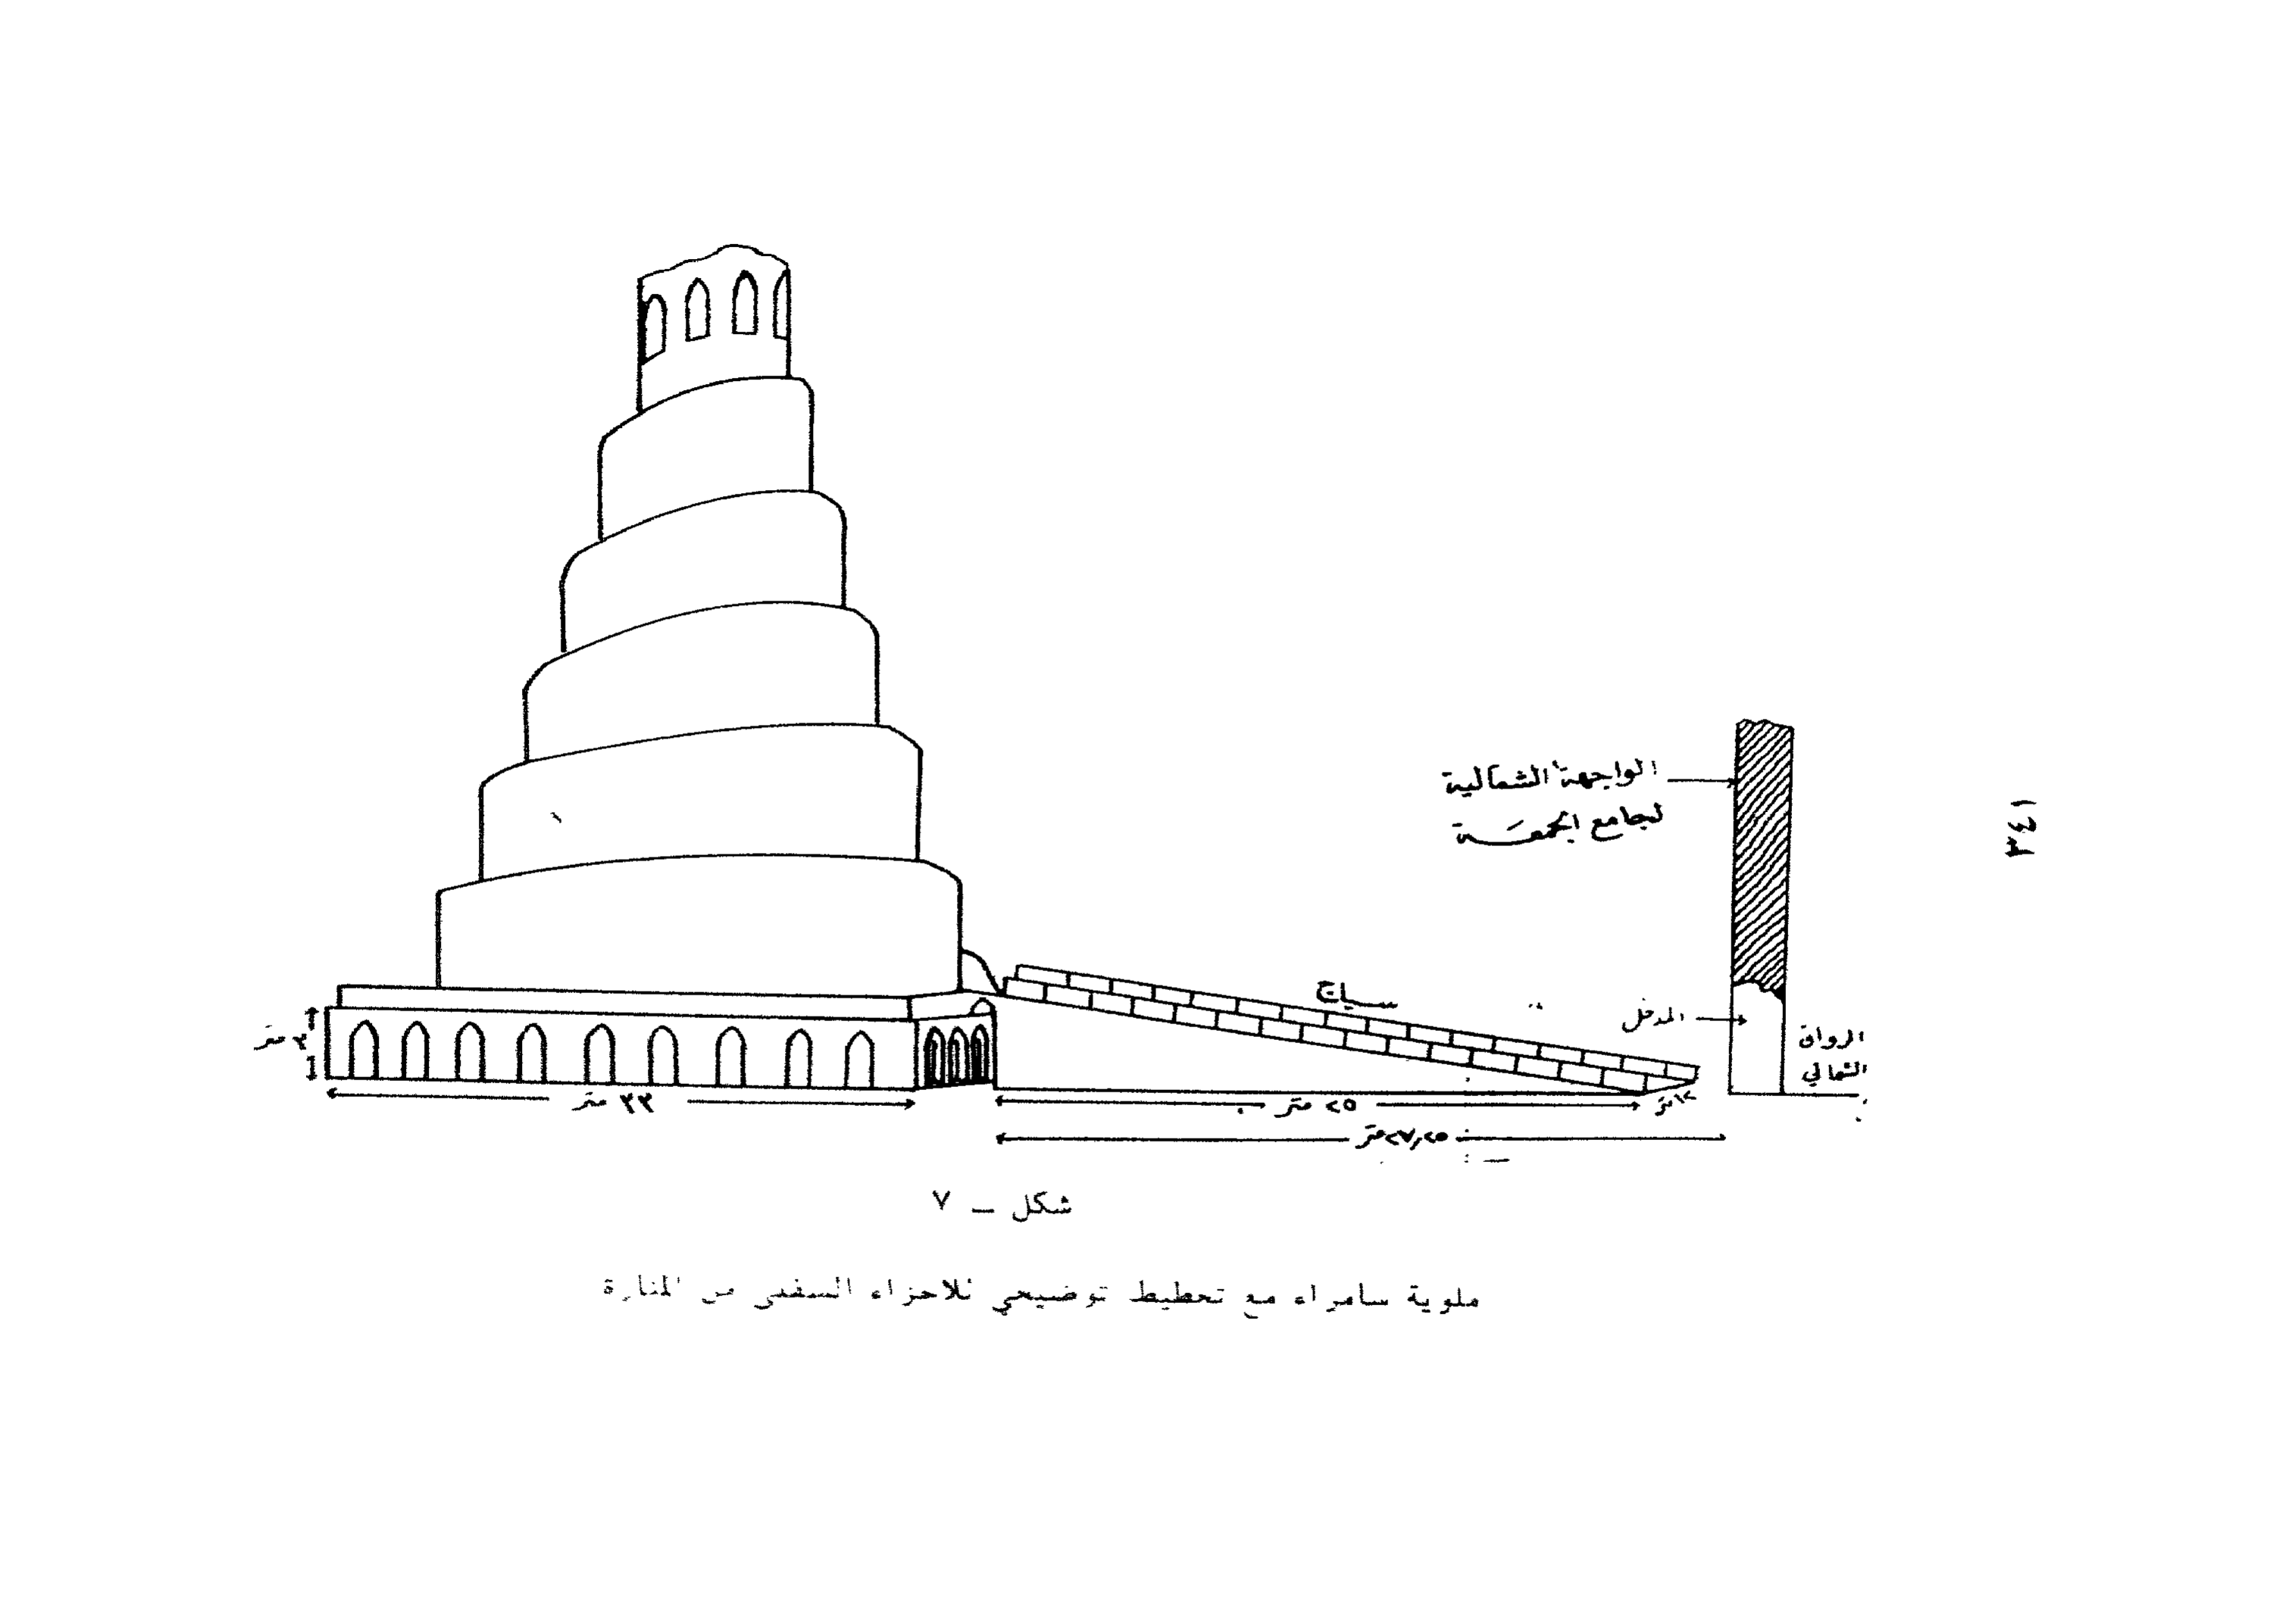 الواجهة الشمالية
لجامع الجمعة
١٤٣
سياج
المدخل
الرواق
الشمالي
٣ متر
٣٣ متر
٢٥ متر
متر
٢٧٫٢٥ متر
شكل – ٧
ملوية سامراء مع تخطيط توضيحي للاجزاء السفلى من المنارة